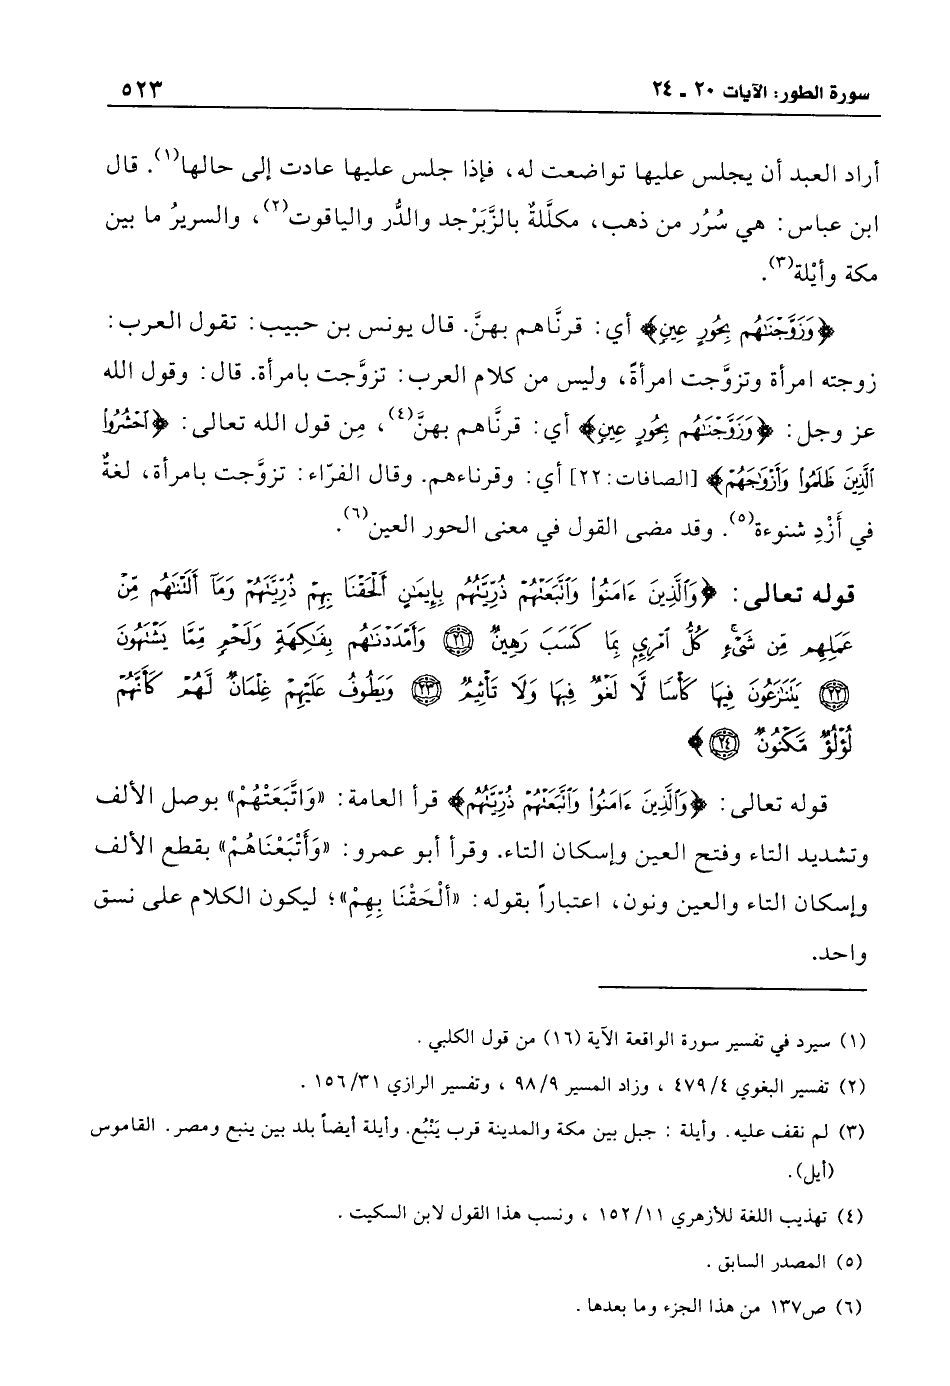 سورة الطور: الآيات ٢٠ - ٢٤ ٥٢٣
أراد العبد أن يجلس عليها تواضعت له، فإذا جلس عليها عادت إلى حالها(١). قال
ابن عباس: هي سُرُر من ذهب، مكلَّلةٌ بالزَّبَرْجد والدُّر والياقوت(٢)، والسريرُ ما بين
مكة وأيْلة(٣).
﴿وَزَوَّجْنَٰهُم بِحُورٍ عِينٍ﴾ أي: قرنَّاهم بهنَّ. قال يونس بن حبيب: تقول العرب:
زوجته امرأة وتزوَّجت امرأةً، وليس من كلام العرب: تزوَّجت بامرأة. قال: وقول الله
عز وجل: ﴿وَزَوَّجْنَٰهُم بِحُورٍ عِينٍ﴾ أي: قرنَّاهم بهنَّ(٤)، مِن قول الله تعالى: ﴿ٱحْشُرُوا۟
ٱلَّذِينَ ظَلَمُوا۟ وَأَزْوَٰجَهُمْ﴾ [الصافات:٢٢] أي: وقرناءهم. وقال الفرّاء: تزوَّجت بامرأة، لغةٌ
في أَزْدِ شنوءة(٥). وقد مضى القول في معنى الحور العين(٦).
قوله تعالى: ﴿وَٱلَّذِينَ ءَامَنُوا۟ وَٱتَّبَعَتْهُمْ ذُرِّيَّتُهُم بِإِيمَٰنٍ أَلْحَقْنَا بِهِمْ ذُرِّيَّتَهُمْ وَمَآ أَلَتْنَٰهُم مِّنْ
عَمَلِهِم مِّن شَىْءٍ كُلُّ ٱمْرِئٍ بِمَا كَسَبَ رَهِينٌ ﴿٢١﴾ وَأَمْدَدْنَٰهُم بِفَٰكِهَةٍ وَلَحْمٍ مِّمَّا يَشْتَهُونَ
﴿٢٢﴾ يَتَنَٰزَعُونَ فِيهَا كَأْسًا لَّا لَغْوٌ فِيهَا وَلَا تَأْثِيمٌ ﴿٢٣﴾ وَيَطُوفُ عَلَيْهِمْ غِلْمَانٌ لَّهُمْ كَأَنَّهُمْ
لُؤْلُؤٌ مَّكْنُونٌ ﴿٢٤﴾﴾
قوله تعالى: ﴿وَٱلَّذِينَ ءَامَنُوا۟ وَٱتَّبَعَتْهُمْ ذُرِّيَّتُهُم﴾ قرأ العامة: «وَاتَّبَعَتْهُمْ» بوصل الألف
وتشديد التاء وفتح العين وإسكان التاء. وقرأ أبو عمرو: «وَأَتْبَعْنَاهُمْ» بقطع الألف
وإسكان التاء والعين ونون، اعتباراً بقوله: «ألْحَقْنَا بِهِمْ»؛ ليكون الكلام على نسق
واحد.
(١) سيرد في تفسير سورة الواقعة الآية (١٦) من قول الكلبي .
(٢) تفسير البغوي ٤/ ٤٧٩ ، وزاد المسير ٩/ ٩٨ ، وتفسير الرازي ٣١/ ١٥٦ .
(٣) لم نقف عليه. وأيلة : جبل بين مكة والمدينة قرب يَنْبُع. وأيلة أيضاً بلد بين ينبع ومصر. القاموس
(أيل).
(٤) تهذيب اللغة للأزهري ١١/ ١٥٢ ، ونسب هذا القول لابن السكيت .
(٥) المصدر السابق .
(٦) ص١٣٧ من هذا الجزء وما بعدها .